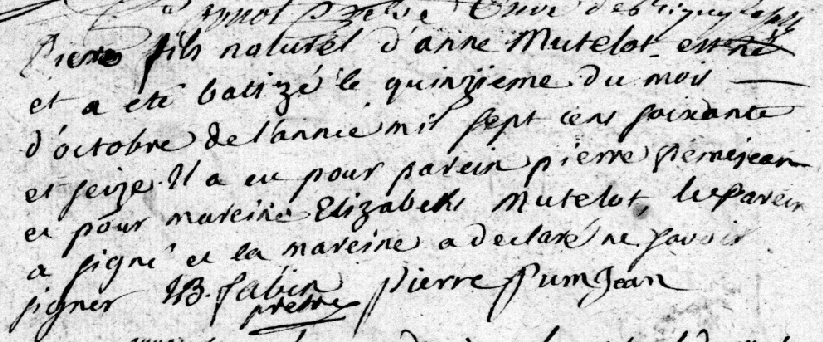 Pierre fils naturel d'anne Mutelot est né
et a eté batizé le quinzieme du mois
d'octobre de l'anneé mil sept cens soixante
et seize. Il a eu pour parein pierre
et pour mareine Elizabeth Mutelot, le parein
a signé et la mareine a declaré ne savoir
signer JB. fabin Pierre PumJean
pretre